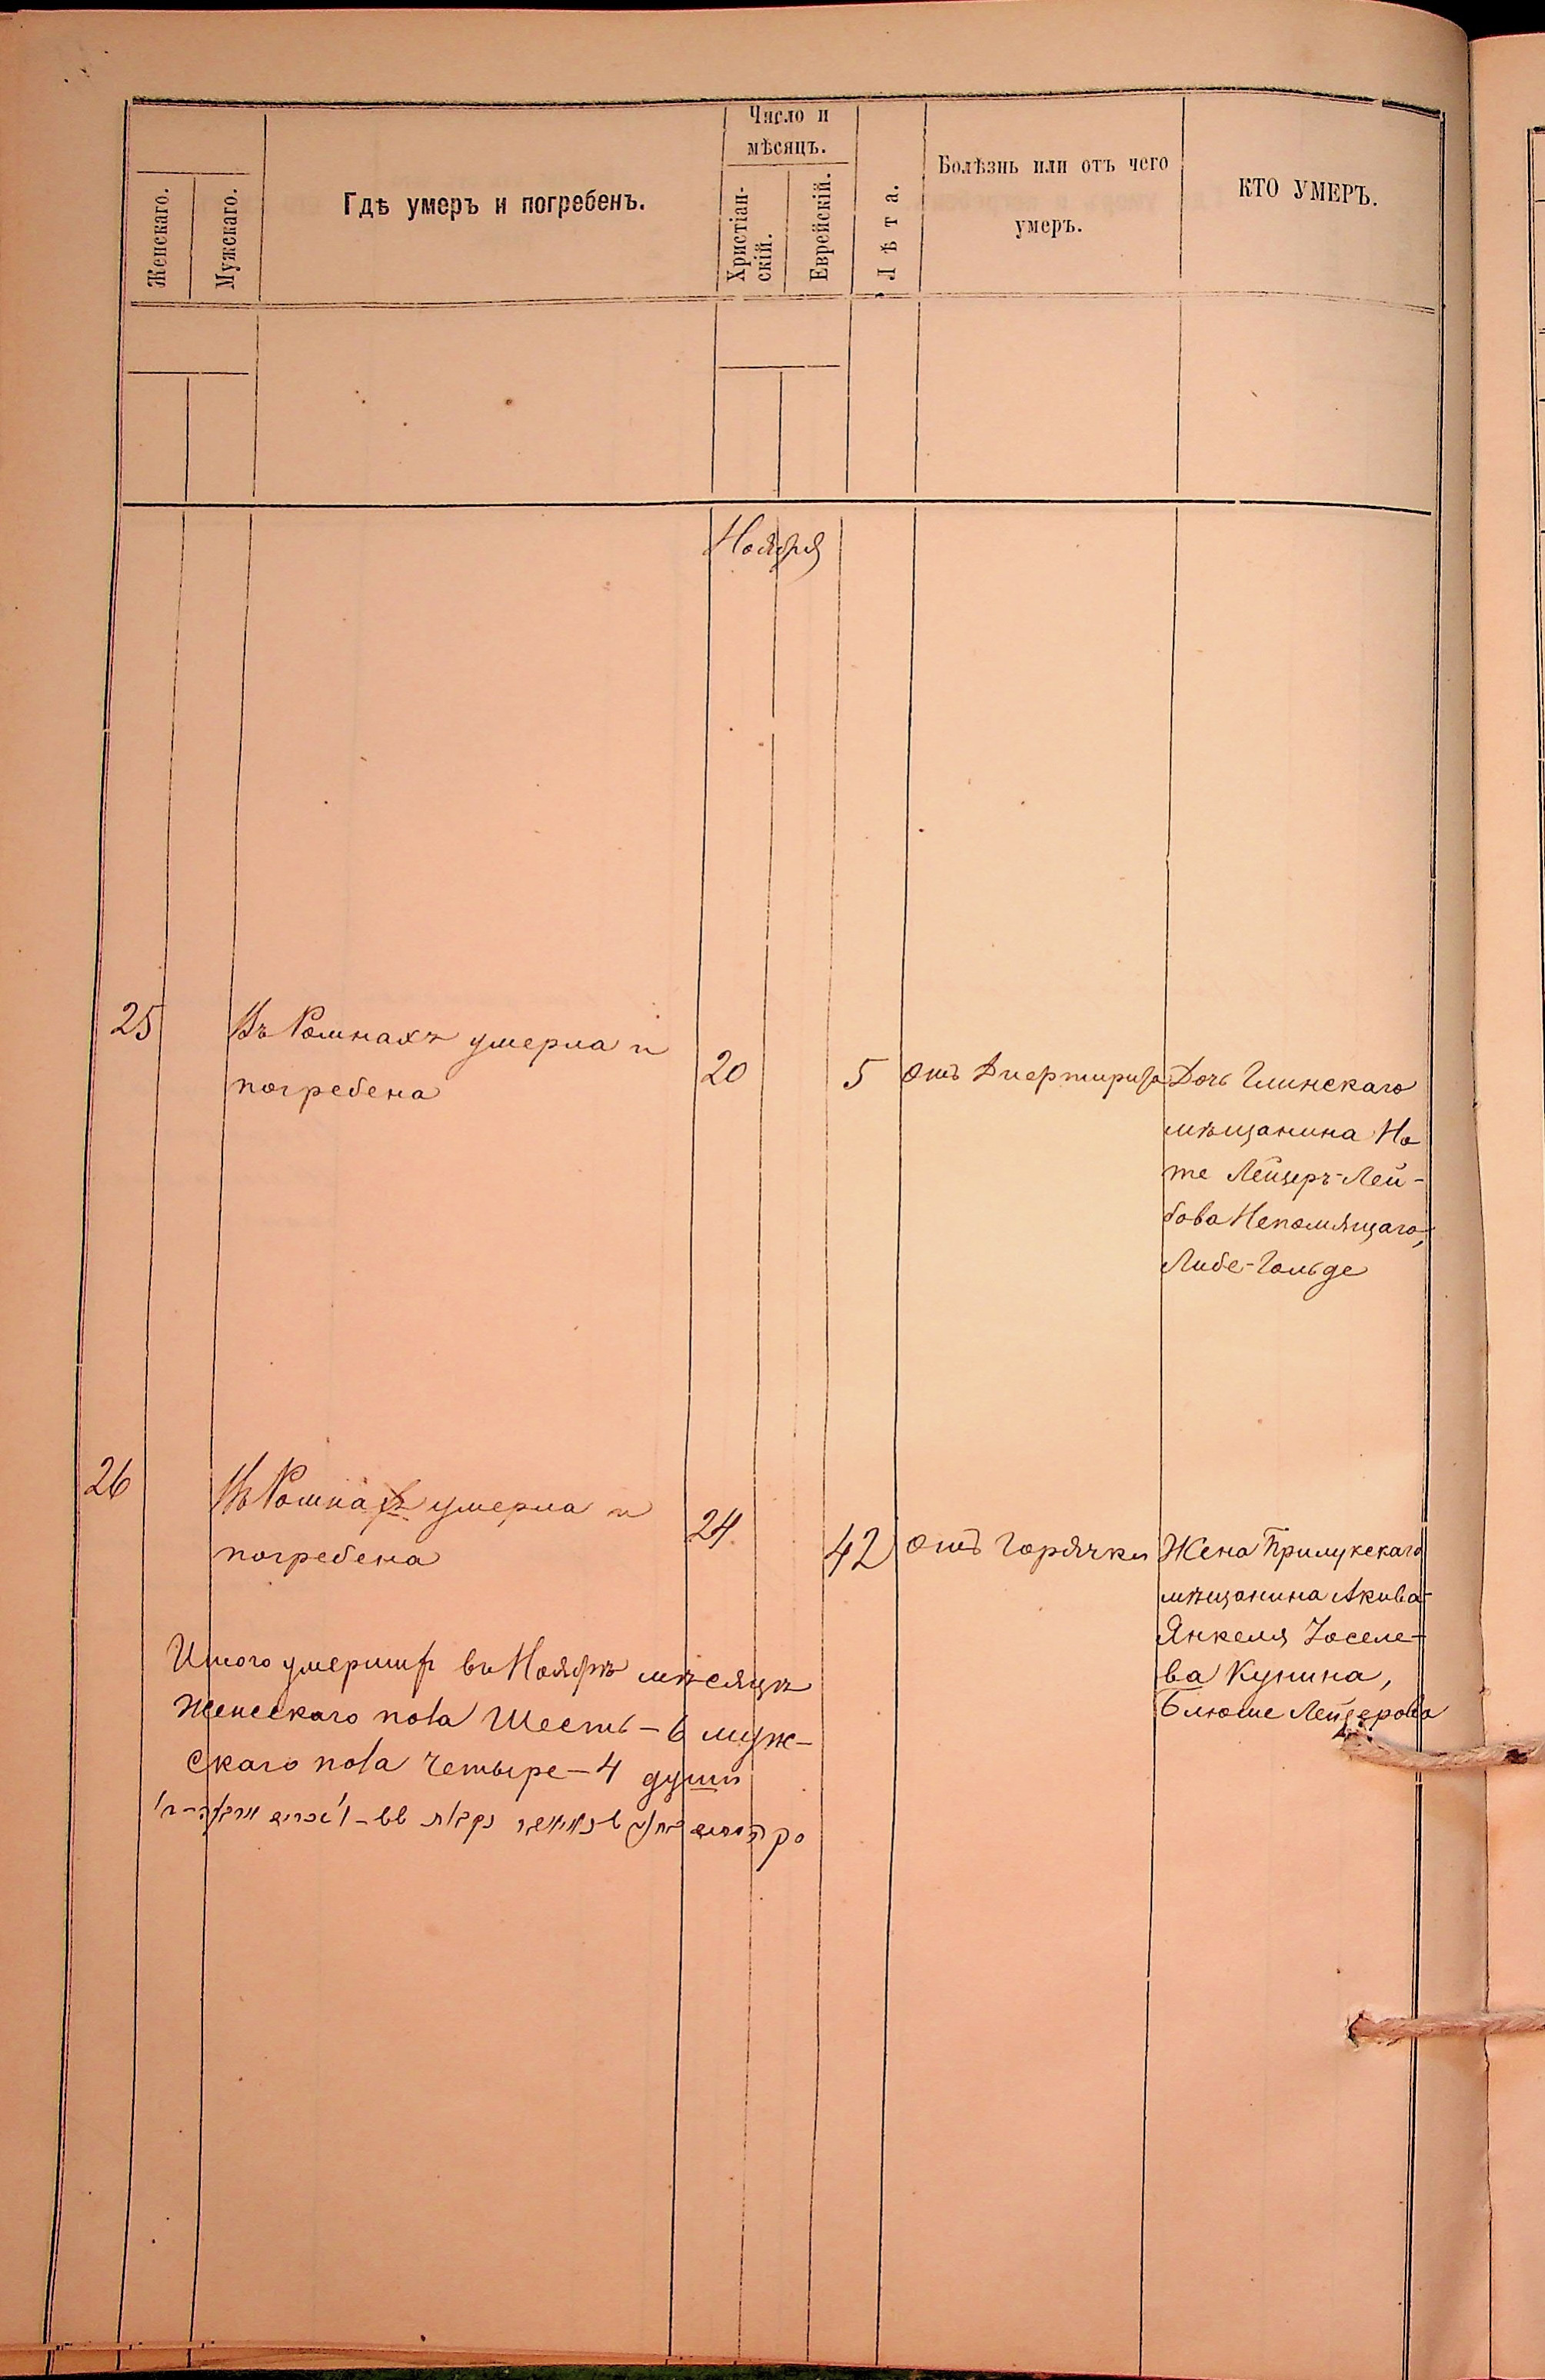 Число и
мѣсяцъ.
Женскаго.
Мужскаго.
Гдѣ умеръ и погребенъ.
Христіан-
скій.
Еврейскій.
Лѣта.
Болѣзнь или отъ чего
умеръ.
КТО УМЕРЪ.
Ноября
25
Въ Ромнахъ умерла и
погребена
20
5
Отъ
Дочь Глинскаго
мѣщанина Но
те Лейзеръ-Лей-
бова Непомящаго,
Либе-Гольде
26
Въ Ромнахъ умерла и
погребена
24
42
Отъ Горячки
Жена Прилукскаго
мѣщанина Акива-
Янкеля Іоселе-
ва Кунина,
Блюме Лейзерова
Итого умершихъ въ Ноябрѣ мѣсяцѣ
женскаго пола Шесть – 6 муж-
скаго пола Четыре – 4 души